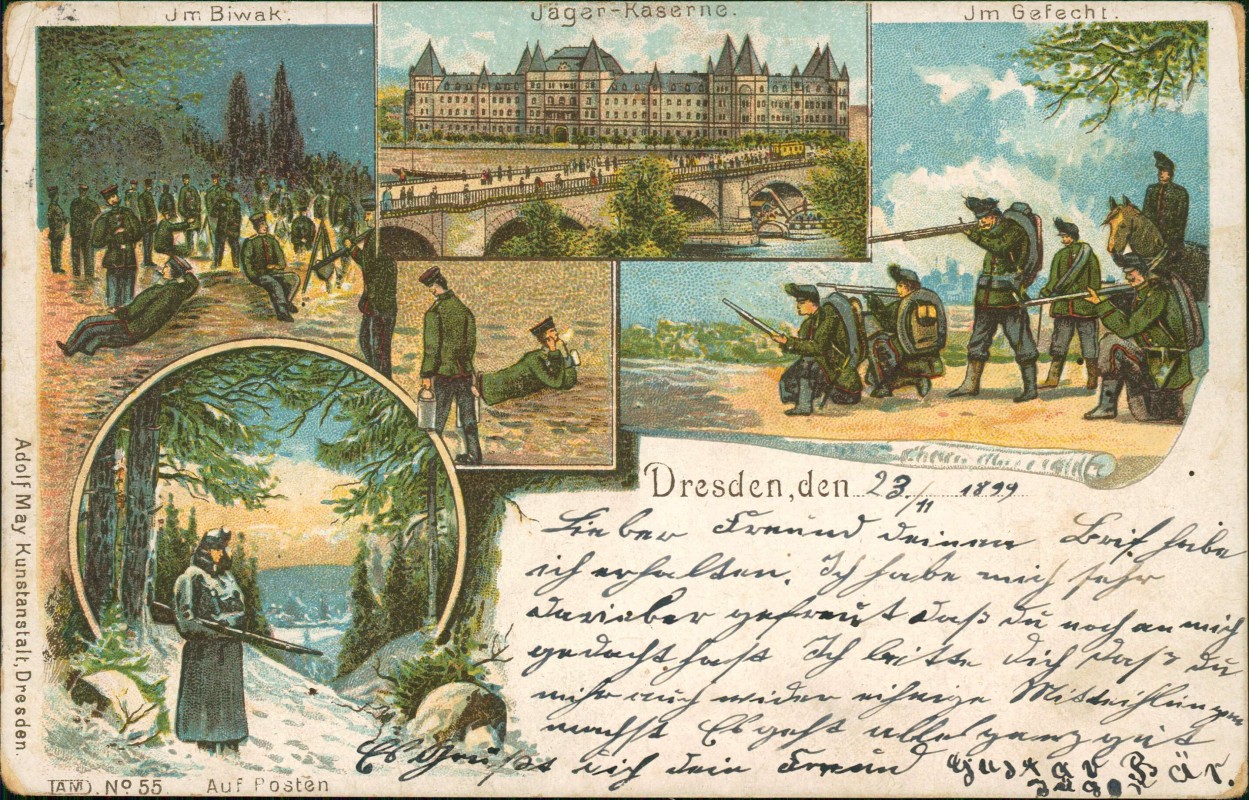 Jm Biwak.
Jäger-Kaserne.
Jm Gefecht.
Dresden, den 23./11 1899
Lieber Freund deinen Brif habe
ich erhalten. Ich habe mich sehr
darieber gefreut daß du noch an mich
gedacht hast Ich bitte dich daß du
mihr auch wider einige Mitteihlungen
machst Es geht alles ganz gut
Es Grüßt dich dein Freund Gustav Bär.
Jäger
Adolf May Kunstanstalt, Dresden.
(AM). No 55.
Auf Posten